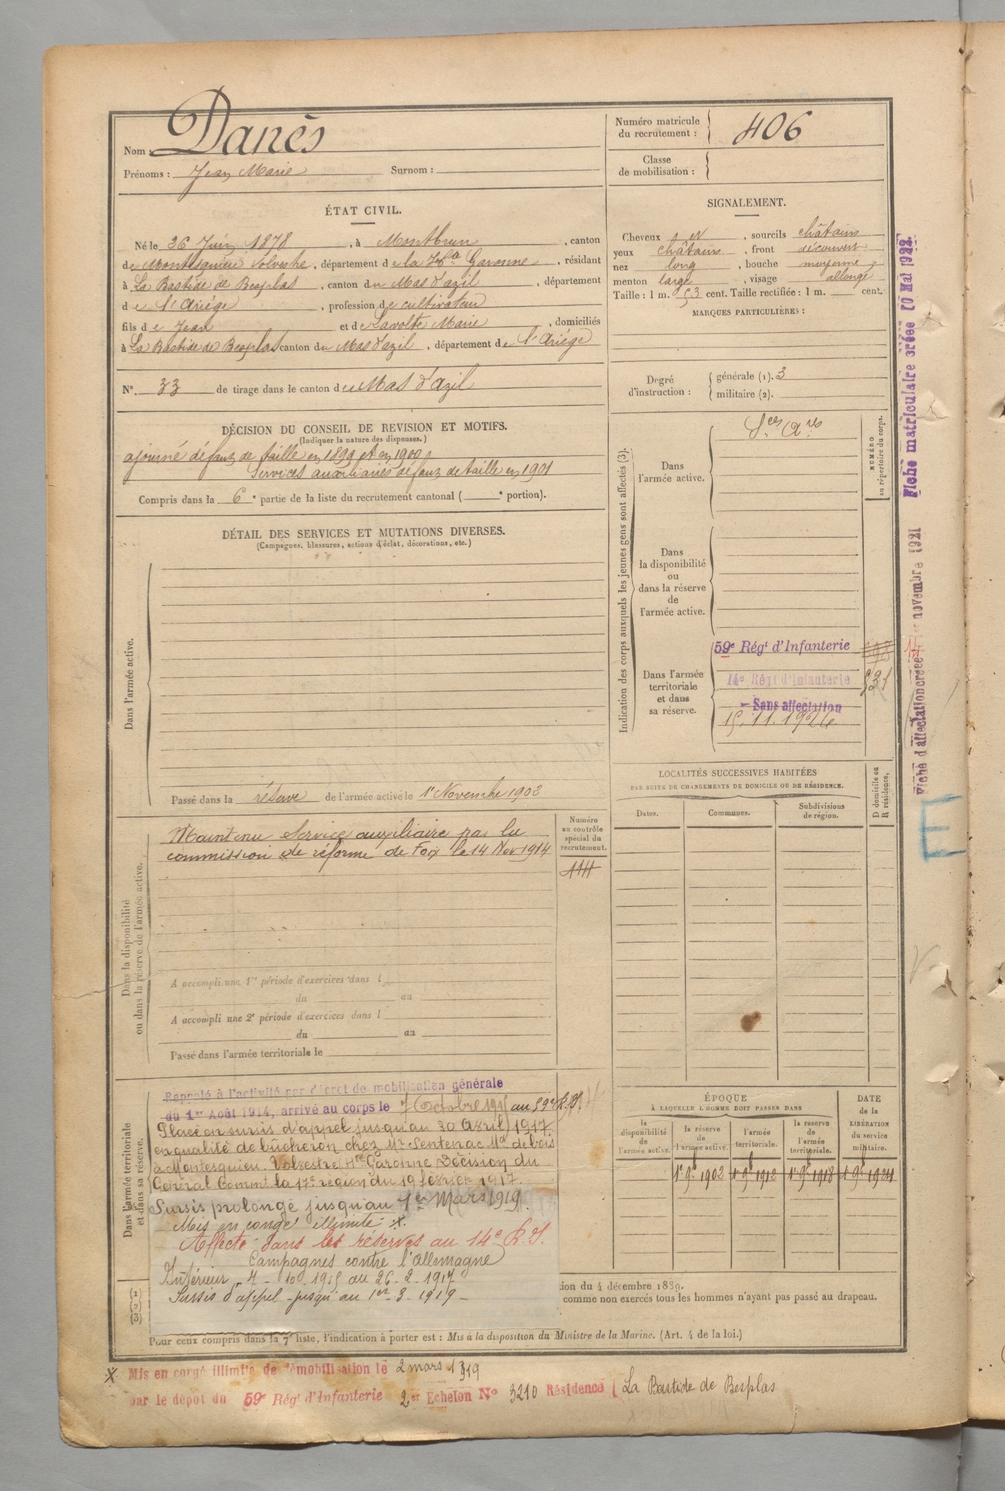 Nom : Danès
Prénoms : Jean Marie Surnom :
Numéro matricule du recrutement : 406
Classe de mobilisation :
ÉTAT CIVIL.
Né le 26 Juin 1878, à Montbrun, canton
de Montesquieu Volvestre, département de la Hte Garonne, résidant
à La Bastide de Besplas, canton du Mas d'azil, département
de l'Ariège, profession de cultivateur
fils de Jean et de Lavolte Marie, domiciliés
à La Bastide de Besplas canton du Mas d'azil, département de l'Ariège
N° 33 de tirage dans le canton de Mas d'azil
SIGNALEMENT.
Cheveux , sourcils châtains
yeux châtains, front découvert
nez long, bouche moyenne
menton large, visage allongé
Taille : 1 m. 53 cent. Taille rectifiée : 1 m. cent.
MARQUES PARTICULIÈRES :
Degré d'instruction : générale (1). 3
militaire (2).
DÉCISION DU CONSEIL DE REVISION ET MOTIFS.
(Indiquer la nature des dispenses.)
ajourné défaut de taille en 1899 et en 1900
Services auxiliaires défaut de taille en 1901
Compris dans la 6e partie de la liste du recrutement cantonal ( e portion).
DÉTAIL DES SERVICES ET MUTATIONS DIVERSES.
(Campagnes, blessures, actions d'éclat, décorations, etc.)
Dans l'armée active.
Passé dans la réserve de l'armée active le 1er Novembre 1902
Indication des corps auxquels les jeunes gens sont affectés (3).
NUMÉRO au répertoire du corps.
Dans l'armée active.
Sces Ares
Dans la disponibilité ou dans la réserve de l'armée active.
Dans l'armée territoriale et dans sa réserve.
59e Régt d'Infanterie
14e Régt d'Infanterie
Sans affectation
15.11.1926
Fiche matriculaire créée 10 Mai 1922
Fiche d'affectation créée novembre 1921
E
LOCALITÉS SUCCESSIVES HABITÉES
PAR SUITE DE CHANGEMENTS DE DOMICILE OU DE RÉSIDENCE.
Dates.
Communes.
Subdivisions de région.
D domicile ou R résidence.
Dans la disponibilité ou dans la réserve de l'armée active.
Maintenu Service auxiliaire par la
commission de réforme de Foix le 14 Nov 1914
Numéro au contrôle spécial du recrutement.
A accompli une 1re période d'exercices dans l
du au
A accompli une 2e période d'exercices dans l
du au
Passé dans l'armée territoriale le
Dans l'armée territoriale et dans sa réserve.
Rappelé à l'activité par décret de mobilisation générale
du 1er Août 1914, arrivé au corps le 7 Octobre 1915 au 59e R.I.
Placé en sursis d'appel jusqu'au 30 Avril 1917
en qualité de bûcheron chez Mr Sentenac Md de bois
à Montesquieu Volvestre Hte Garonne Décision du
Général Commt la 17e région du 19 février 1917.
Sursis prolongé jusqu'au 1er Mars 1919.
Mis en congé illimité X.
Affecté dans les réserves au 14e R.I.
Campagnes contre l'Allemagne
Intérieur 7-10-1915 au 26-2-1917
Sursis d'appel jusqu'au 1er-3-1919
ÉPOQUE
À LAQUELLE L'HOMME DOIT PASSER DANS
la disponibilité de l'armée active.
la réserve de l'armée active.
l'armée territoriale.
la réserve de l'armée territoriale.
DATE de la LIBÉRATION du service militaire.
1er 9bre 1902
1er 9bre 1912
1er 9bre 1918
(1)
(2)
(3)
comme non exercés tous les hommes n'ayant pas passé au drapeau.
Pour ceux compris dans la 7e liste, l'indication à porter est : Mis à la disposition du Ministre de la Marine. (Art. 4 de la loi.)
X Mis en congé illimité de démobilisation le 2 mars 1919
par le dépôt du 59e Régt d'Infanterie 2er Echelon N° 3210 Résidence La Bastide de Besplas